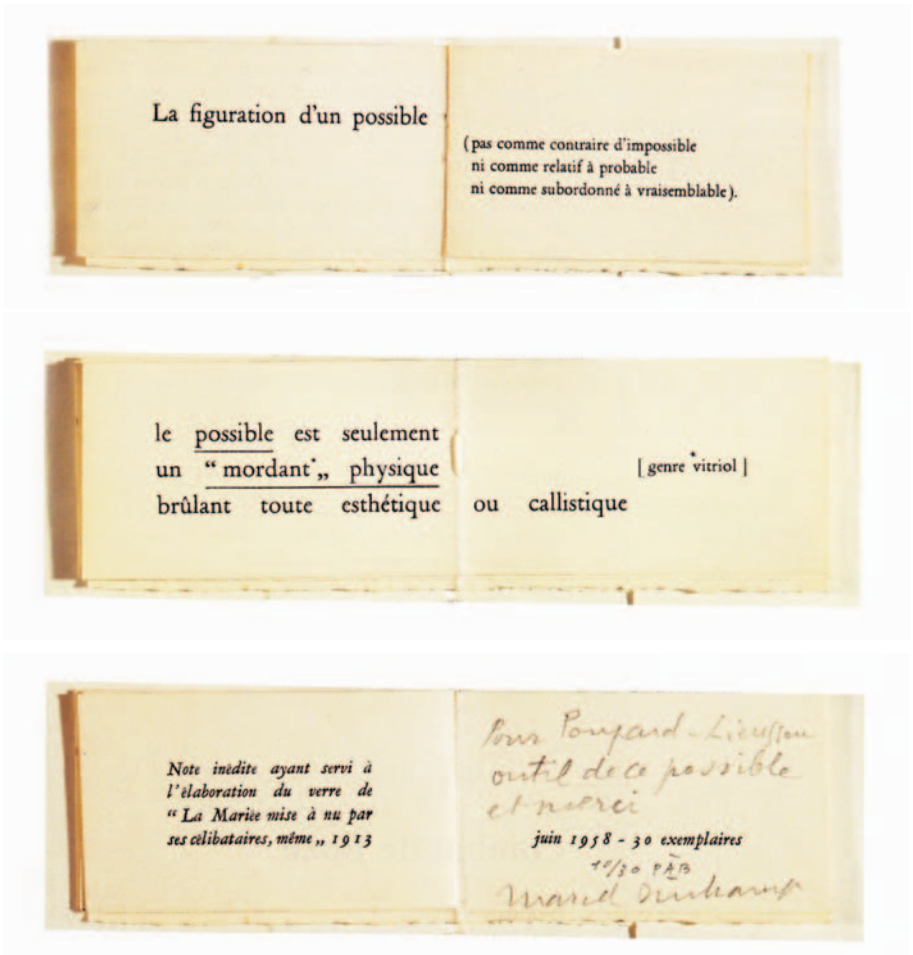 La figuration d'un possible
(pas comme contraire d'impossible
ni comme relatif à probable
ni comme subordonné à vraisemblable).
le possible est seulement
un “ mordant „ physique
[ genre vitriol ]
brûlant toute esthétique ou callistique
Note inèdite ayant servi à
l'èlaboration du verre de
“ La Marièe mise à nu par
ses cèlibataires, même „ 1913
Pour Poupard-Lieussou
outil de ce possible
et merci
juin 1958 - 30 exemplaires
10/30 PAB
Marcel Duchamp